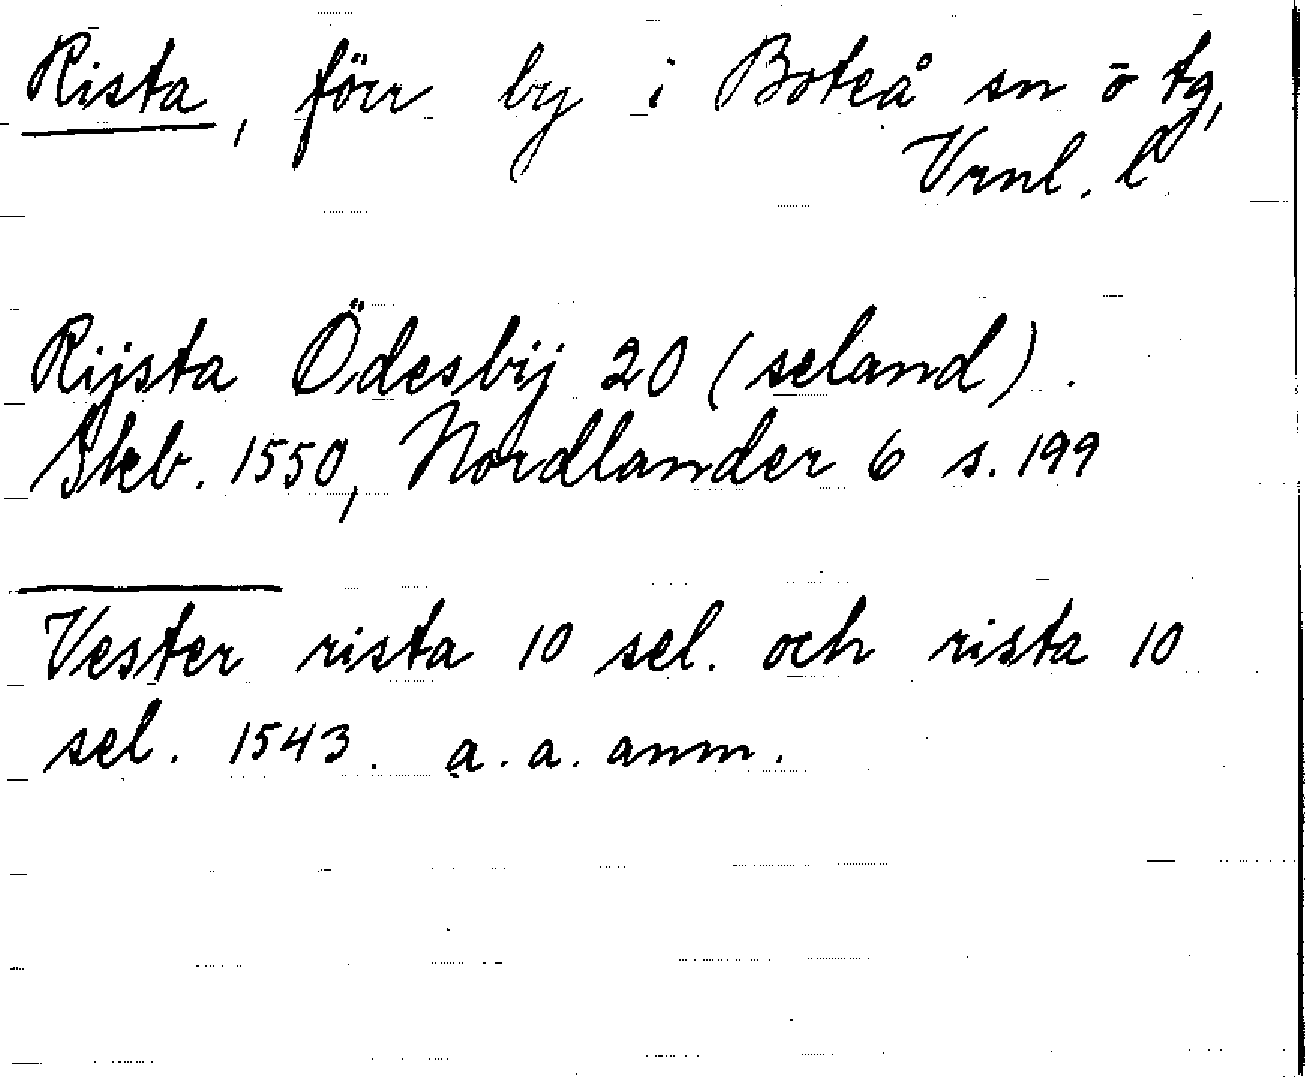 Rista, förr by i Boteå sn ö tg,
Vrnl. l
Rijsta Ödesbij 20 (seland).
Skb. 1550, Nordlander 6 s. 199
Vester rista 10 sel. och rista 10
sel. 1543. a.a. anm.